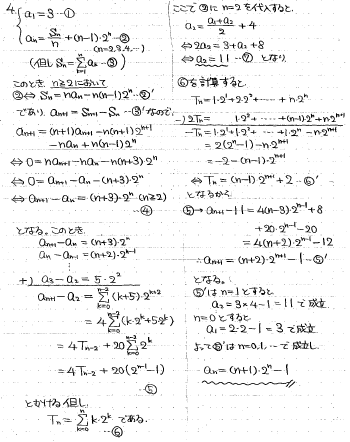 4. { a₁ = 3 …①
aₙ = Sₙ/n + (n-1)·2ⁿ …②
(n=2,3,4,…)
(但し Sₙ = Σ[k=1→n] aₖ …③)
このとき、n≧2において
②⇔ Sₙ = naₙ - n(n-1)2ⁿ …②'
であり、aₙ₊₁ = Sₙ₊₁ - Sₙ …③' なので、
aₙ₊₁ = (n+1)aₙ₊₁ - n(n+1)2ⁿ⁺¹
- naₙ + n(n-1)2ⁿ
⇔ 0 = naₙ₊₁ - naₙ - n(n+3)·2ⁿ
⇔ 0 = aₙ₊₁ - aₙ - (n+3)·2ⁿ
⇔ aₙ₊₁ - aₙ = (n+3)·2ⁿ (n≧2)
④
となる。このとき、
aₙ₊₁ - aₙ = (n+3)·2ⁿ
aₙ - aₙ₋₁ = (n+2)·2ⁿ⁻¹
⋮
+) a₃ - a₂ = 5·2²
aₙ₊₁ - a₂ = Σ[k=0→n-2] (k+5)·2ᵏ⁺²
= 4Σ[k=0→n-2] (k·2ᵏ+5·2ᵏ)
= 4Tₙ₋₂ + 20Σ[k=0→n-2] 2ᵏ
= 4Tₙ₋₂ + 20(2ⁿ⁻¹-1)
⑤
とかける 但し、
Tₙ = Σ[k=0→n] k·2ᵏ である。
⑥
ここで ②に n=2 を代入すると、
a₂ = (a₁+a₂)/2 + 4
⇔ 2a₂ = 3+a₂+8
⇔ a₂ = 11 …⑦ となり
⑥を計算すると、
Tₙ = 1·2¹+2·2²+ … + n·2ⁿ
-) 2Tₙ = 1·2²+ … +(n-1)·2ⁿ+n·2ⁿ⁺¹
-Tₙ = 1·2¹+1·2²+ … +1·2ⁿ-n·2ⁿ⁺¹
= 2(2ⁿ-1)-n·2ⁿ⁺¹
= -2-(n-1)·2ⁿ⁺¹
⇔ Tₙ = (n-1)·2ⁿ⁺¹+2 …⑥'
となるから
⑤→ aₙ₊₁-11 = 4(n-3)·2ⁿ⁻¹+8
+20·2ⁿ⁻¹-20
= 4(n+2)·2ⁿ⁻¹-12
∴ aₙ₊₁ = (n+2)·2ⁿ⁺¹-1 …⑤'
となる。
⑤'は n=1とすると
a₂ = 3×4-1 = 11 で成立
n=0とすると
a₁ = 2·2-1 = 3 で成立
よって⑤'は n=0,1,… で成立し、
aₙ = (n+1)·2ⁿ-1